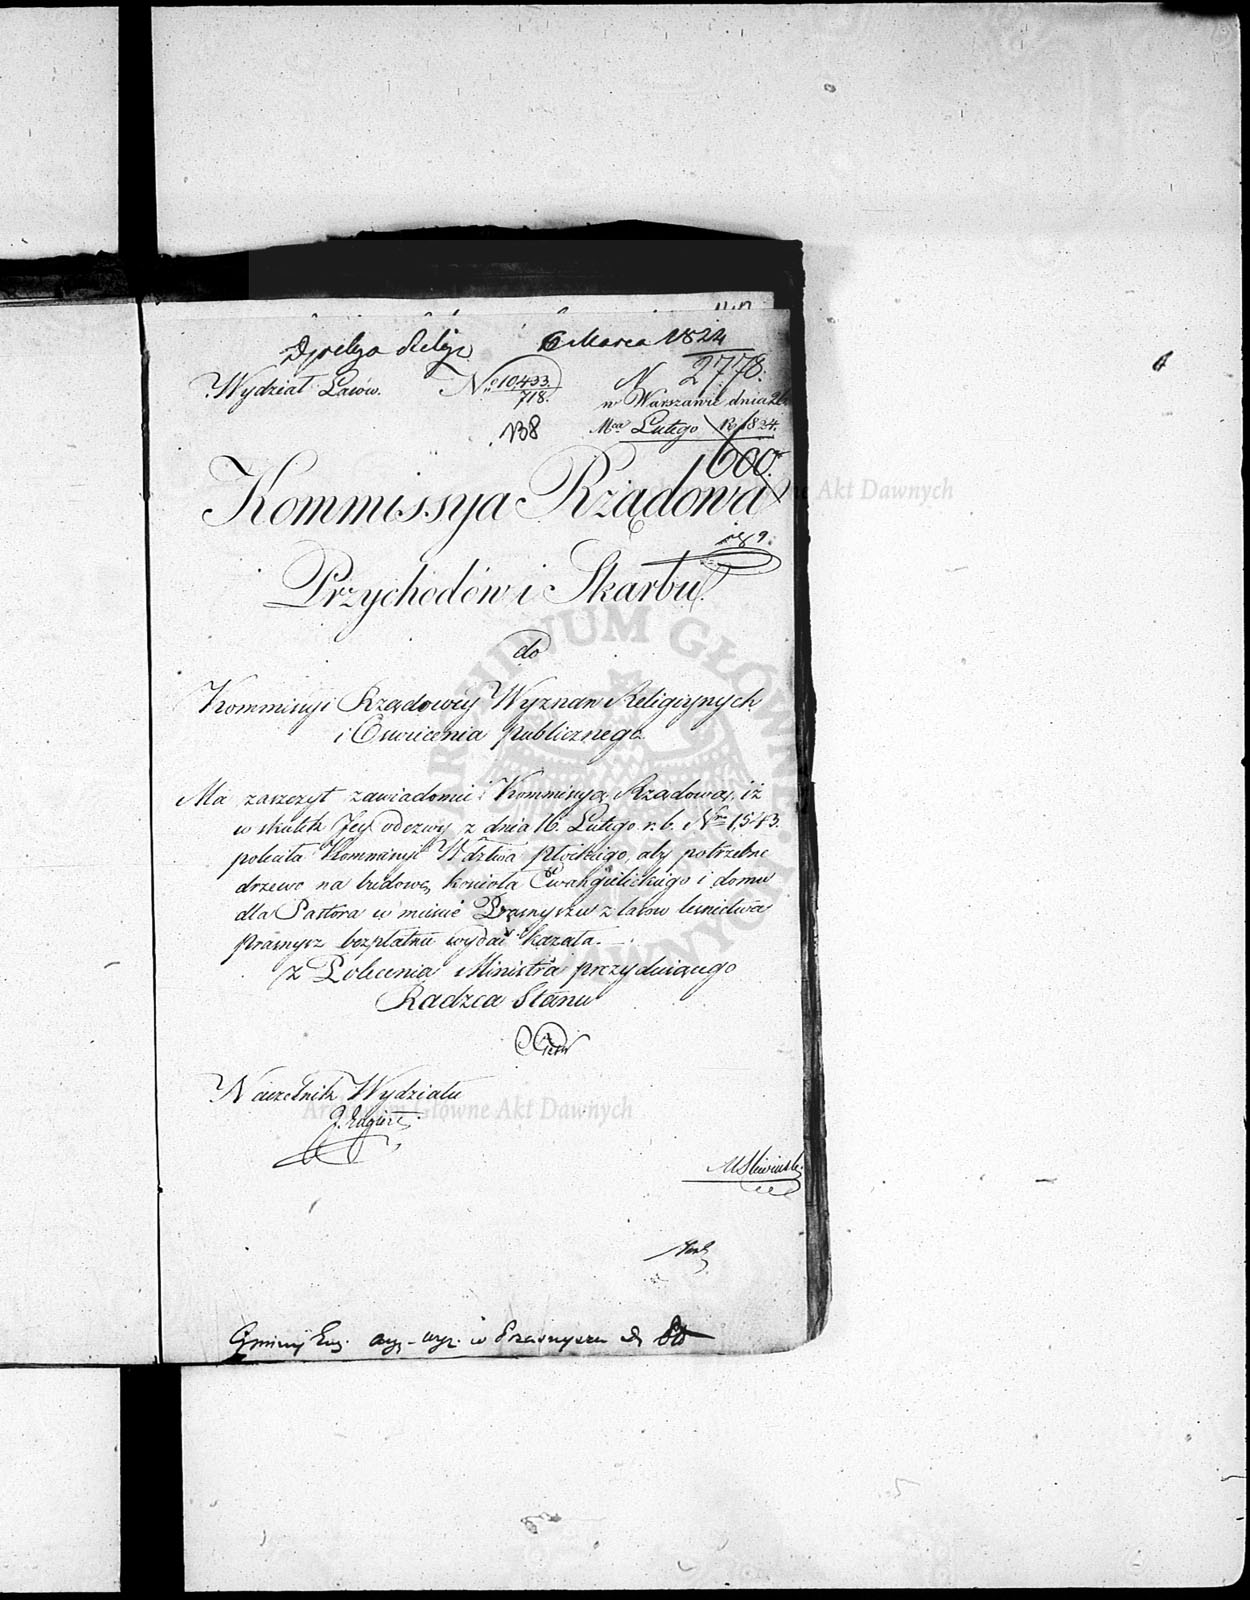 6 Marca 1824
N 2778.
Wydział Lasów. No 10,433.
718.
w Warszawie dnia 26
138
Mca Lutego R. 1824.
1600.
Kommissya Rządowa
Przychodów i Skarbu.
do
Kommissyi Rządowey Wyznań Religiynych
i Oswiecenia publicznego
Ma zaszczyt zawiadomić Kommissyą Rządową, iż
w skutek Jey odezwy z dnia 16. Lutego r. b. Nro 1,543.
poleciła Kommissyi Wdztwa Płockiego, aby potrzebne
drzewo na budowę kościoła Ewangielickiego i domu
dla Pastora w mieście Prasnyszu z lasów leśnictwa
Prasnysz bezpłatnie wydać kazała.
z Polecenia Ministra prezyduiącego
Radzca Stanu
Naczelnik Wydziału
Archiwum Główne Akt Dawnych